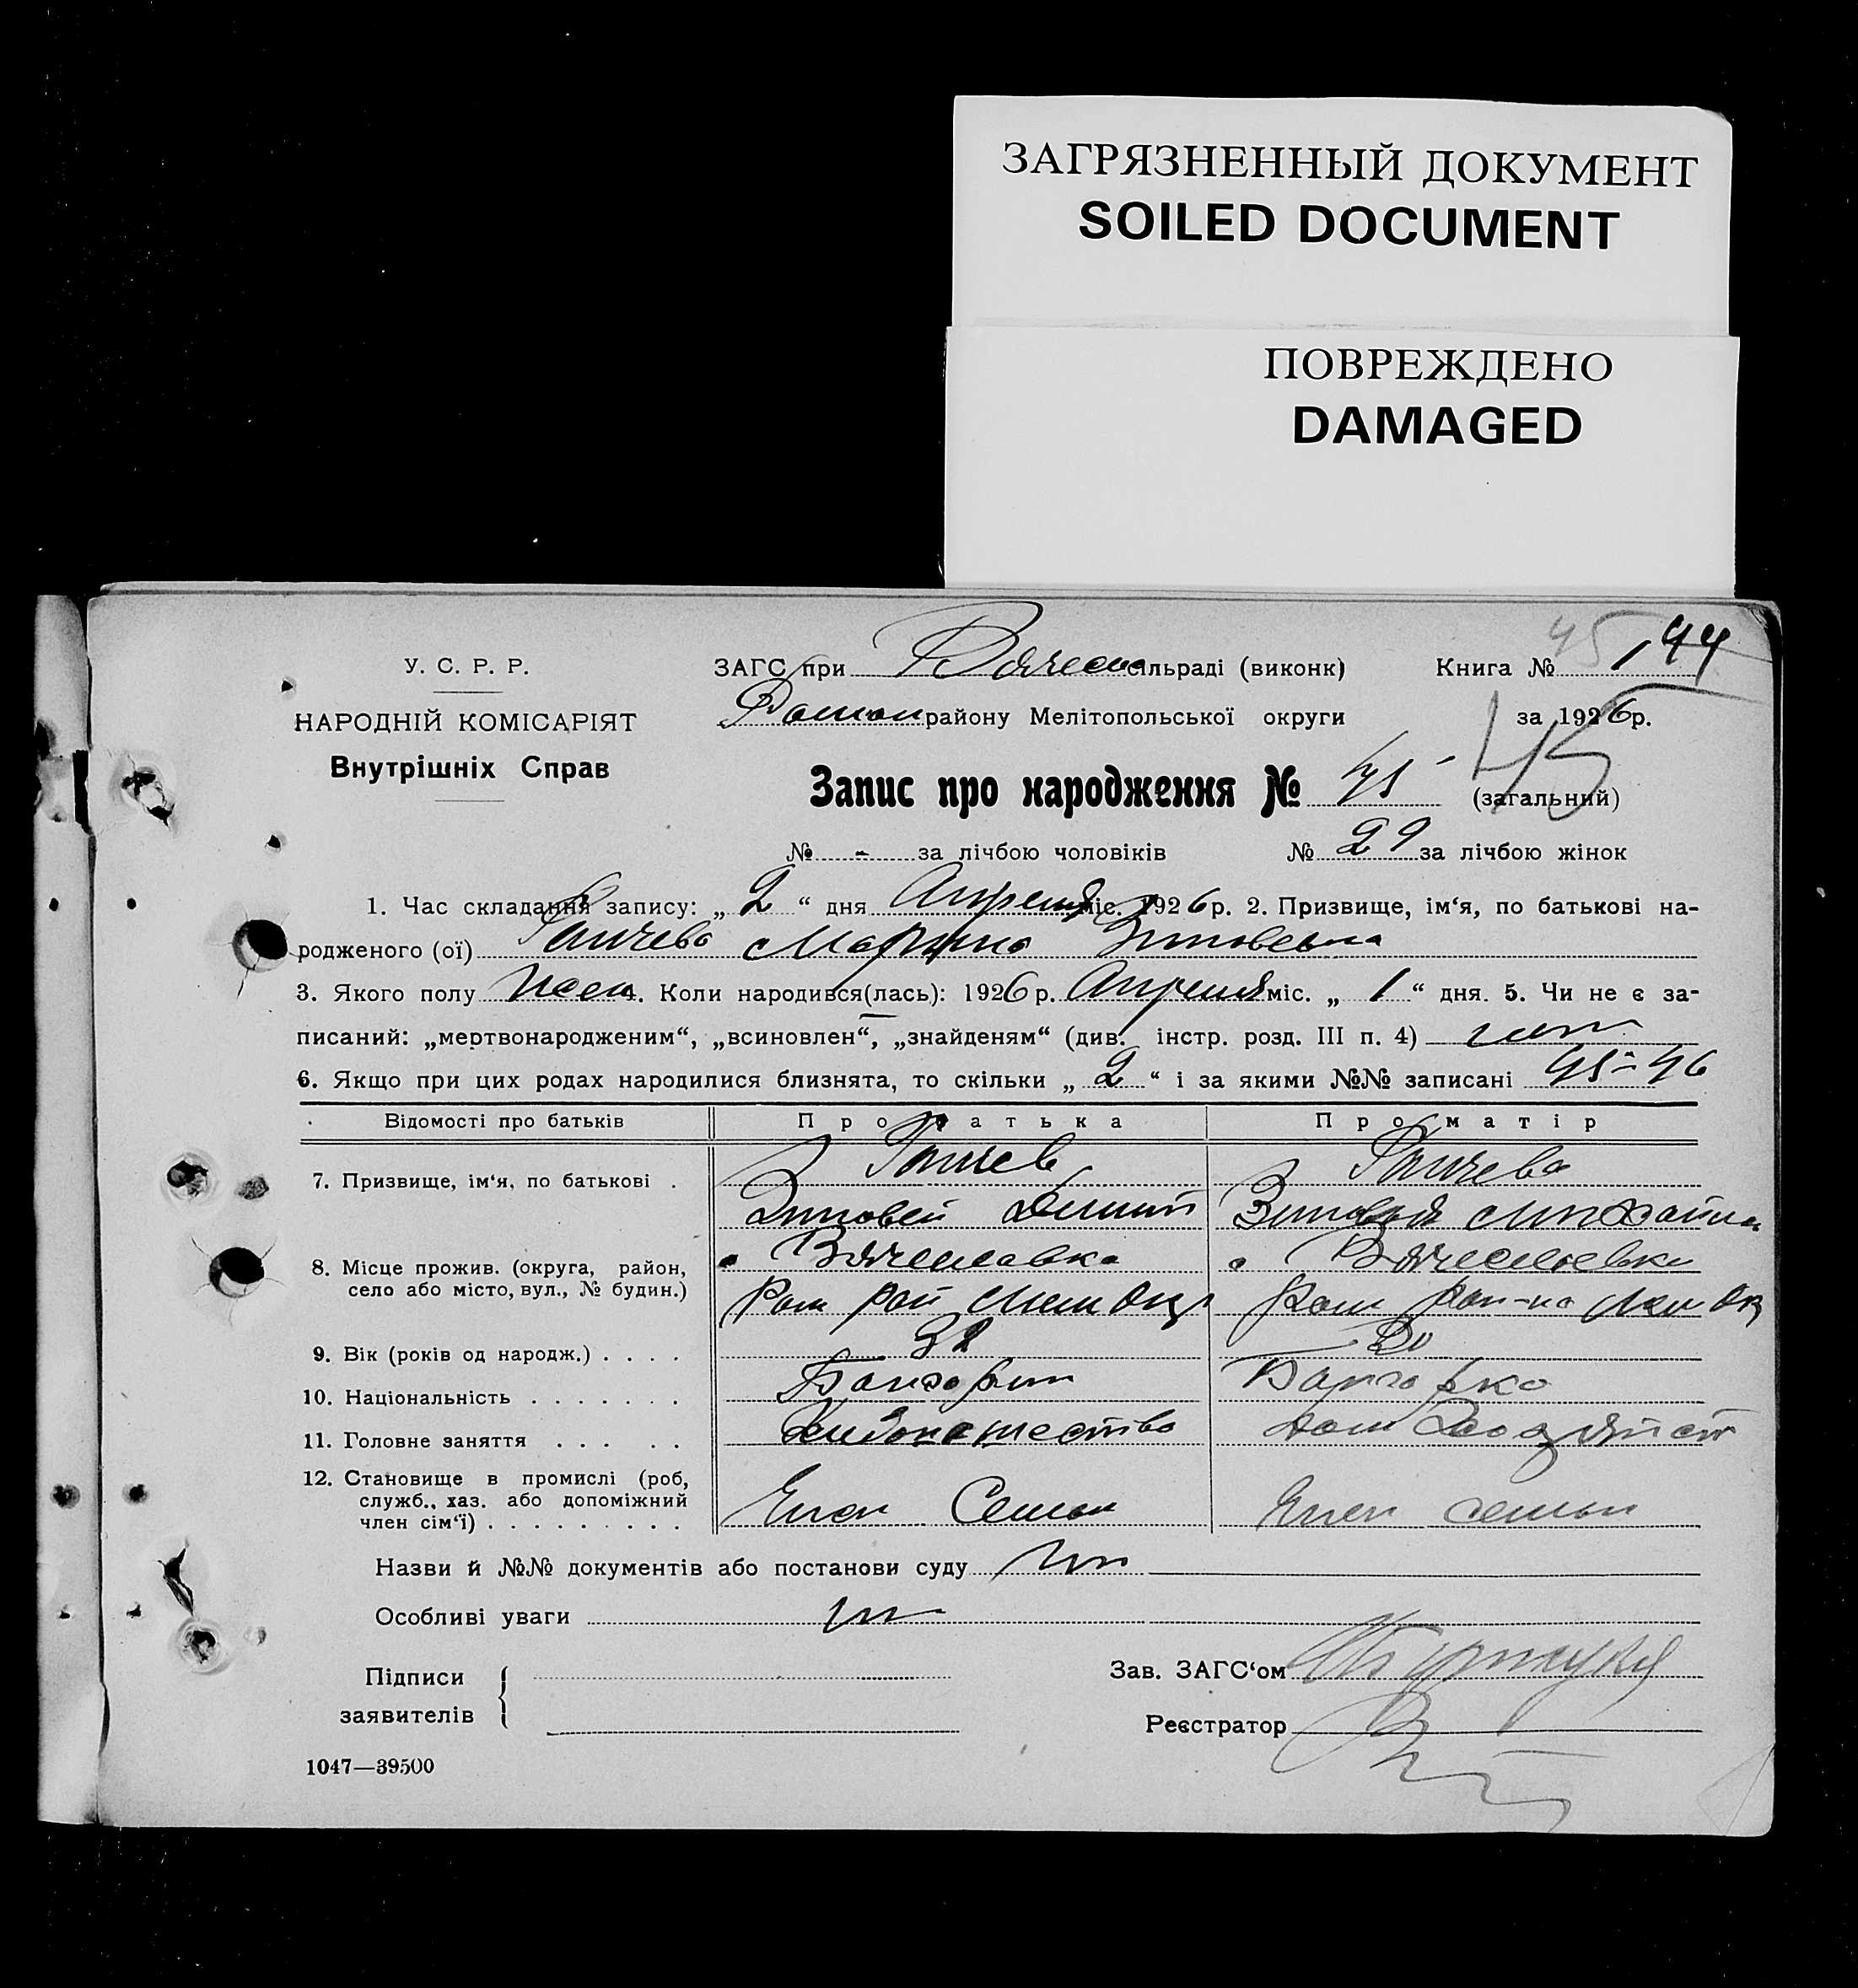 ЗАГРЯЗНЕННЫЙ ДОКУМЕНТ
SOILED DOCUMENT
ПОВРЕЖДЕНО
DAMAGED
У. С. Р. Р.
НАРОДНІЙ КОМІСАРІЯТ
Внутрішніх Справ
45 144
ЗАГС при Вячесл сільраді (виконк) Книга №
Роман району Мелітопольської округи за 1926 р.
Запис про народження № 45 45 (загальний)
№ - за лічбою чоловіків № 29 за лічбою жінок
1. Час складання запису: „ 2 “ дня Апреля міс. 1926 р. 2. Призвище, ім‘я, по батькові на-
родженого (ої) Ганчева Марина Зиновьевна
3. Якого полу Жен 4. Коли народився(лась): 1926 р. Апреля міс. „ 1 “ дня. 5. Чи не є за-
писаний: „мертвонародженим“, „всиновлен“, „знайденям“ (див. інстр. розд. III п. 4) нет
6. Якщо при цих родах народилися близнята, то скільки „ 2 “ і за якими №№ записані 45-46
Відомості про батьків Про батька Про матір
7. Призвище, ім‘я, по батькові . Ганчев Ганчева
Зиновей Зиновья Михайлов
8. Місце прожив. (округа, район, село або місто, вул., № будин.) Вячеславка Вячеславка
Ром рай Мел Окр Ром рай-на Мел Ок
9. Вік (років од народж.) . . . . 32 30
10. Національність . . . . . . . Болгарин Болгарка
11. Головне заняття . . . . . Хлебопашество дом Хозяйст
12. Становище в промислі (роб, служб., хаз. або допоміжний член сім‘ї) . . . . . . . . . Член Семьи Член семьи
Назви й №№ документів або постанови суду нет
Особливі уваги нет
Підписи заявителів
Зав. ЗАГС‘ом
Реєстратор
1047—39500